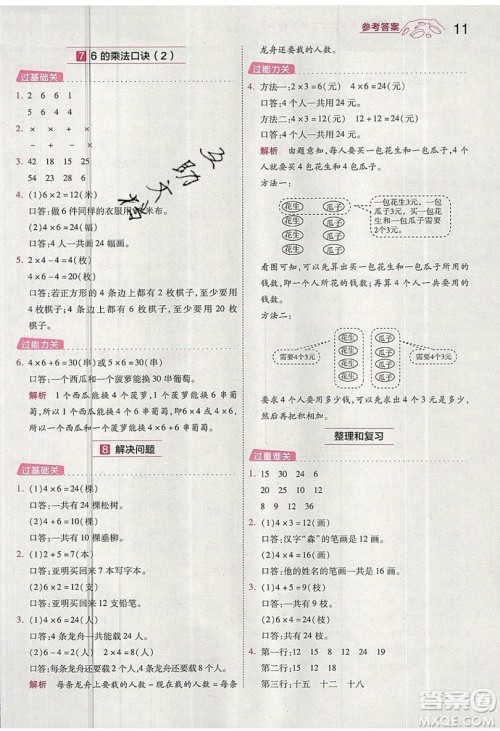 参考答案 11
7 6的乘法口诀(2)
过基础关
1. 2 6 6 1
2 6 6 1
2. × × × ×
+ + - -
3. 42 18 15
54 23 28
4. (1)6×2=12(米)
口答:做6件同样的衣服用12米布。
(2)4×6=24(幅)
口答:4人一共画24幅画。
5. 2×4-4=4(枚)
4×6-4=20(枚)
口答:若正方形的4条边上都有2枚棋子,至少要用4枚棋子;若4条边上都有6枚棋子,至少要用20枚棋子。
过能力关
6. 4×6+6=30(串)或5×6=30(串)
口答:一个西瓜和一个菠萝能换30串葡萄。
解析 1个西瓜能换4个菠萝,1个菠萝能换6串葡萄,所以1个西瓜和1个菠萝能换5个6串葡萄。
8 解决问题
过基础关
1. (1)4×6=24(棵)
口答:一共有24棵松树。
(2)4+6=10(棵)
口答:一共有10棵柳树。
2. (1)2+5=7(本)
口答:亚明买回来7本写字本。
(2)2×6=12(支)
口答:亚明买回来12支铅笔。
3. (1)4×6=24(人)
口答:4条龙舟一共能载24人。
(2)6-4=2(人)
口答:每条龙舟上还要载2人。
解析 每条龙舟上要载的人数-现在的人数=每条
龙舟还要载的人数。
过能力关
4. 方法一:2×3=6(元) 4×6=24(元)
口答:4个人一共用24元。
方法二:4×3=12(元) 12+12=24(元)
口答:4个人一共用24元。
解析 由题意知,每人要买一包花生和一包瓜子,4个人就要买4包花生和4包瓜子。
方法一:
花生 瓜子
花生 瓜子
花生 瓜子
花生 瓜子
一包花生3元,一包瓜子3元,一包花生和一包瓜子需要2个3元。
看图可知,可以先算出买一包花生和一包瓜子所用的钱数,即一个人所花的钱数;再算4个人一共需要用的钱数。
方法二:
需要4个3元
花生 瓜子
花生 瓜子
花生 瓜子
花生 瓜子
需要4个3元
求4个人要用多少钱,可以先算出买4包花生用的钱数,再算出买4包瓜子用的钱数,最后把这两个积相加。
整理和复习
过重难关
1. 15 30 24 6
9 20 12 36
2. (1)4×3=12(画)
口答:汉字“淼”的笔画有12画。
(2)4×4=16(画)
口答:他的姓名的笔画一共有16画。
3. (1)4+5=9(元)
口答:一共要用9元。
(2)4×5=20(元)
口答:一共要用20元。
4. 第一行:12 13 18 29
第二行:24 36 24
第三行:十五 十二 十八
答案圈
MXQE.COM